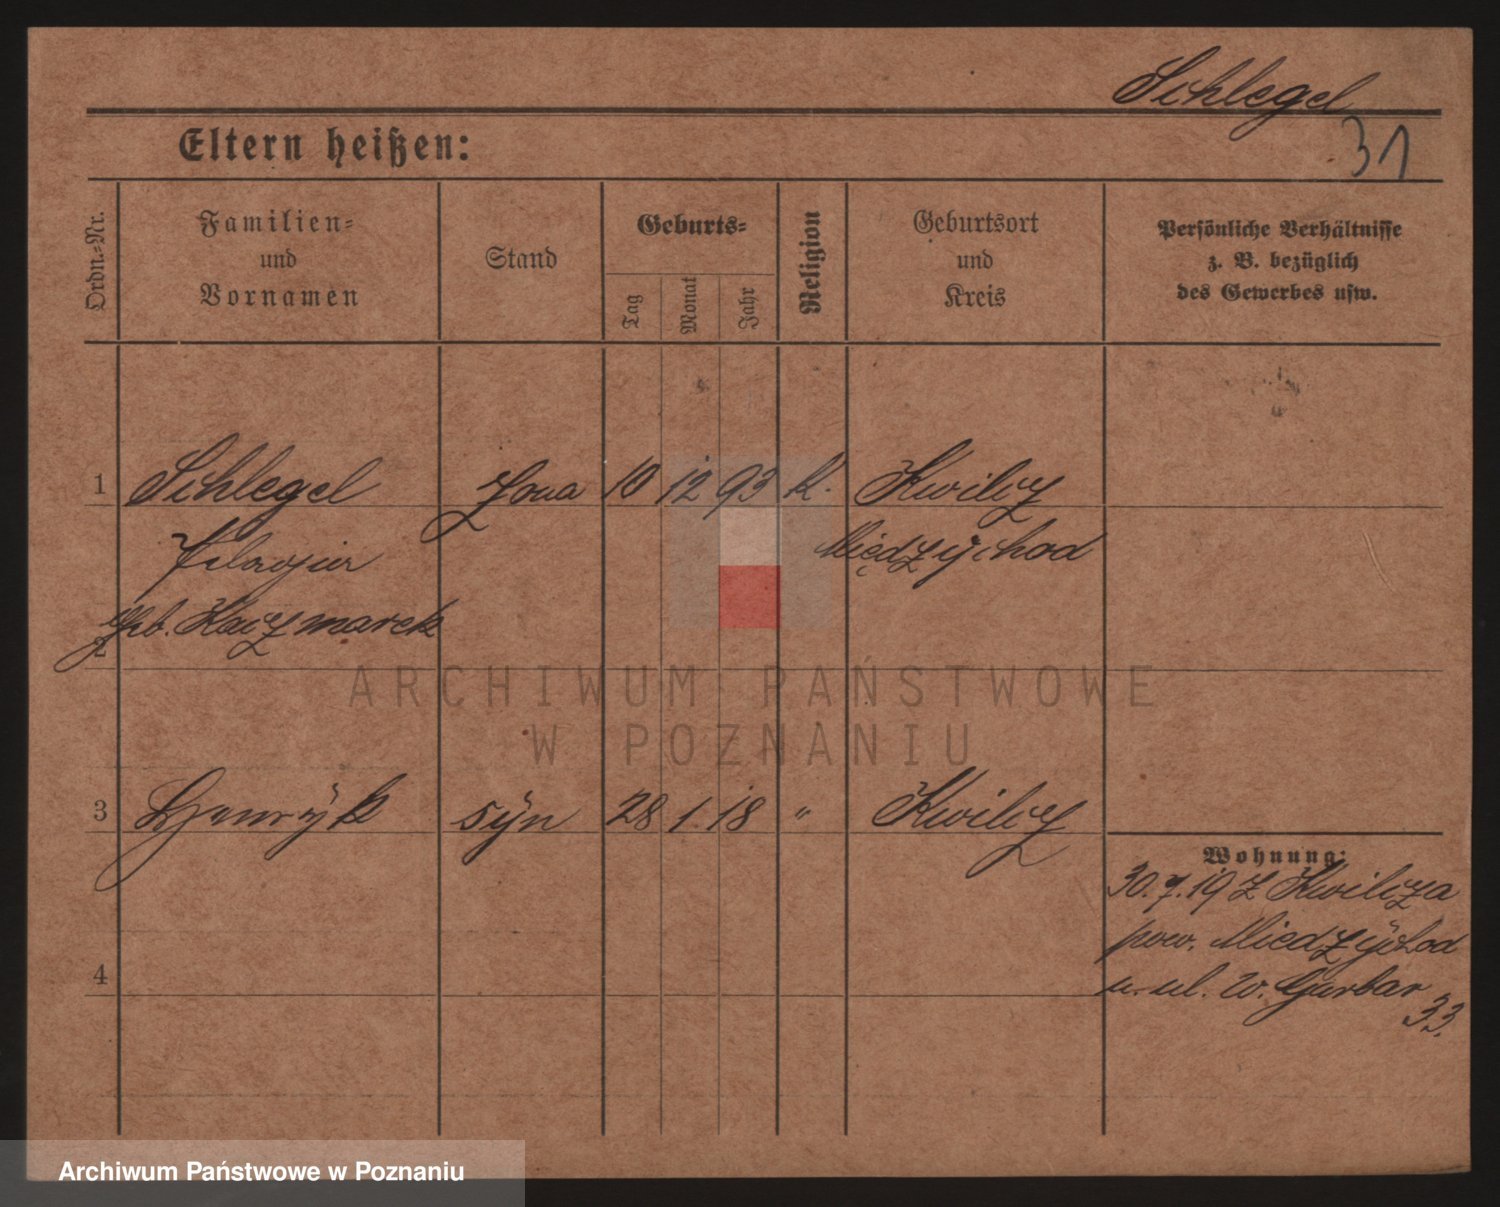 Schlegel
31
Eltern heißen:
Ordn.-Nr.
Familien-
und
Vornamen
Stand
Geburts-
Tag
Monat
Jahr
Religion
Geburtsort
und
Kreis
Persönliche Verhältnisse
z. B. bezüglich
des Gewerbes usw.
1 Schlegel żona 10 12 93 k. Kwilcz
Międzychod
geb. Kaczmarek
2
ARCHIWUM PAŃSTWOWE
W POZNANIU
3 Henryk syn 28 1. 18 " Kwilcz
Wohnung:
30. 7. 19 z Kwilcza
pow. Miedzychod
u. ul. W. Garbar
33.
4
Archiwum Państwowe w Poznaniu